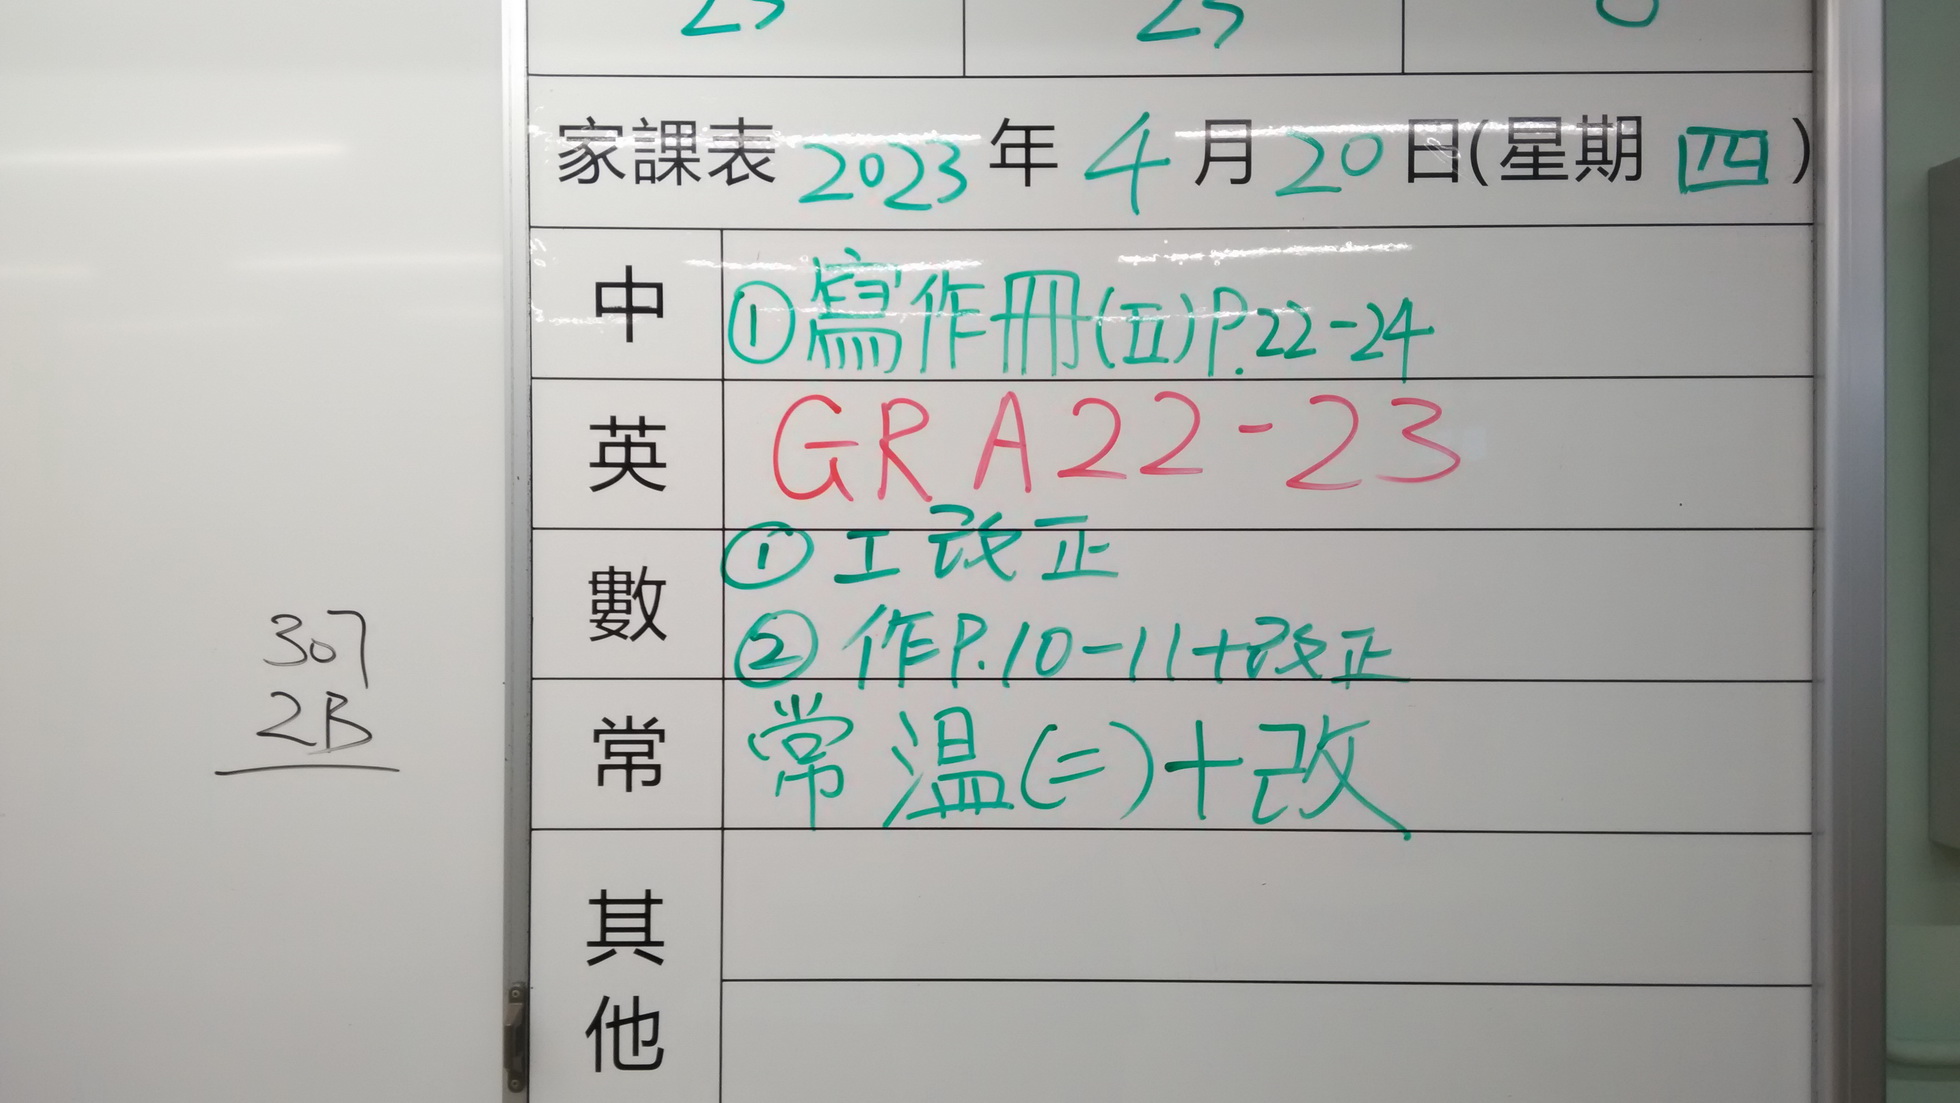 家課表 2023 年 4 月 20 日(星期 四)
中 ① 寫作冊(II) P.22-24
英 GRA22-23
數 ① 工改正
② 作P.10-11+改正
常 常溫(二)+改
其他
307
2B